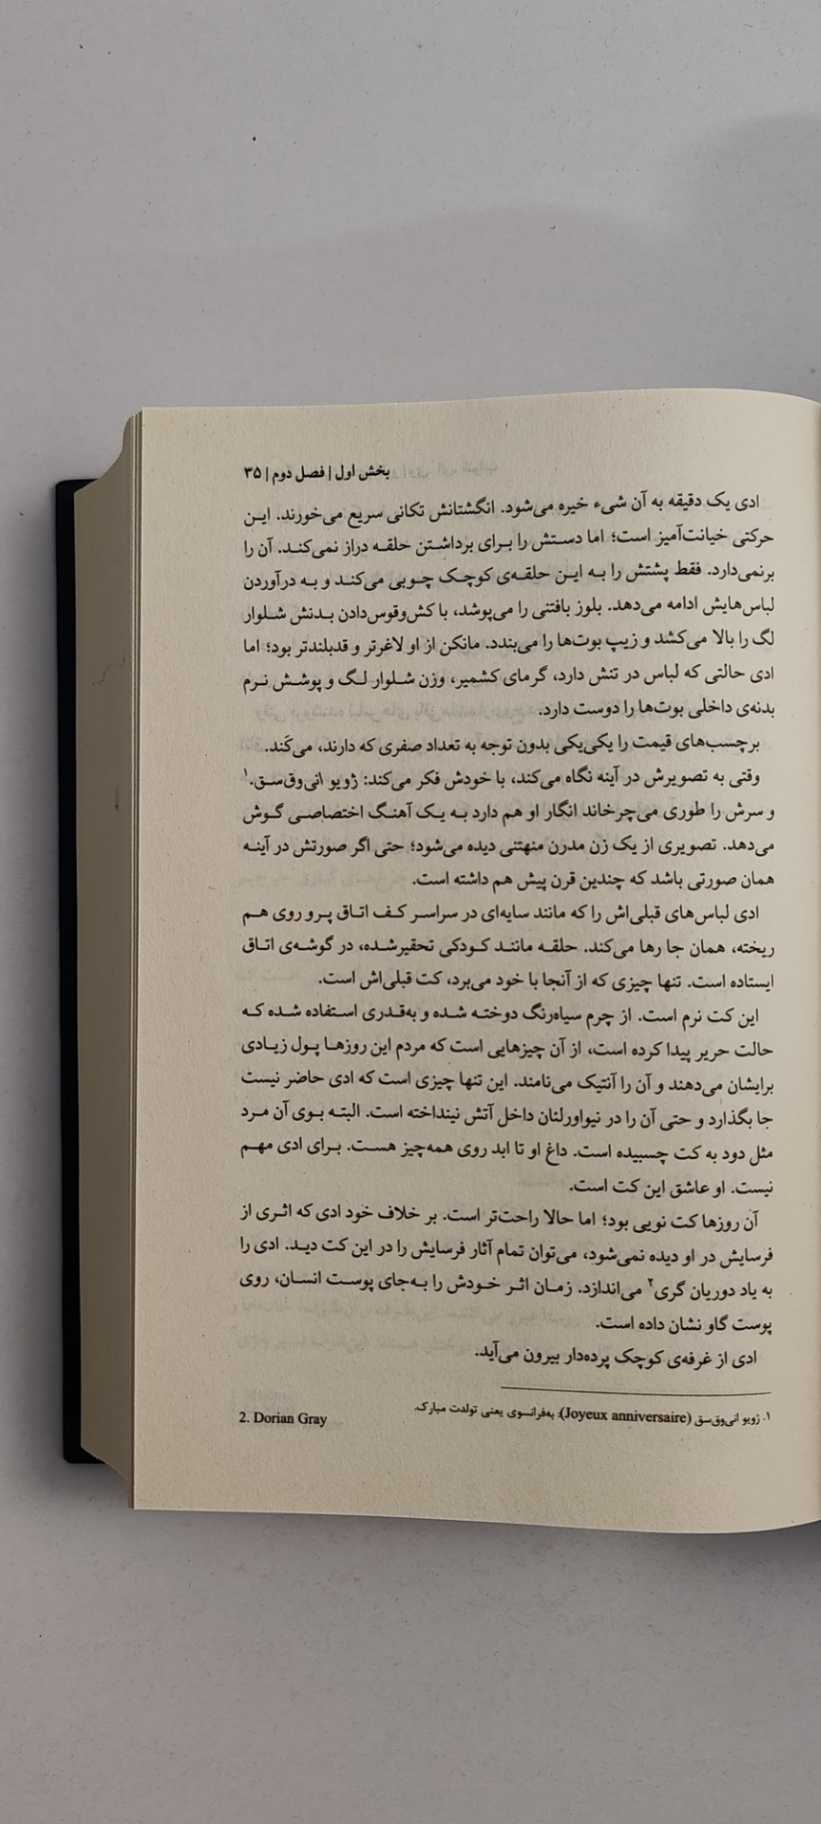 بخش اول | فصل دوم | ۳۵
ادی یک دقیقه به آن شیء خیره می‌شود. انگشتانش تکانی سریع می‌خورند. ایـن
حرکتی خیانت‌آمیز است؛ اما دسـتش را بـرای برداشـتن حلقـه دراز نمی‌کنـد. آن را
برنمی‌دارد. فقط پشتش را بـه ایـن حلقـه‌ی کوچـک چـوبی می‌کنـد و بـه درآوردن
لباس‌هایش ادامه می‌دهد. بلوز بافتنی را می‌پوشد، با کش‌وقوس‌دادن بـدنش شـلوار
لگ را بالا می‌کشد و زیپ بوت‌ها را می‌بندد. مانکن از او لاغرتر و قدبلندتر بود؛ اما
ادی حالتی که لباس در تنش دارد، گرمای کشمیر، وزن شـلوار لـگ و پوشـش نـرم
بدنه‌ی داخلی بوت‌ها را دوست دارد.
برچسب‌های قیمت را یکی‌یکی بدون توجه به تعداد صفری که دارند، می‌کَند.
وقتی به تصویرش در آینه نگاه می‌کند، با خودش فکر می‌کند: ژویو انی‌وق‌سـق.۱
و سرش را طوری می‌چرخاند انگار او هم دارد بـه یـک آهنـگ اختصاصـی گـوش
می‌دهد. تصویری از یک زن مدرن منهتنی دیده می‌شود؛ حتی اگر صورتش در آینـه
همان صورتی باشد که چندین قرن پیش هم داشته است.
ادی لباس‌های قبلی‌اش را که مانند سایه‌ای در سراسـر کـف اتـاق پـرو روی هـم
ریخته، همان جا رها می‌کند. حلقـه ماننـد کـودکی تحقیرشـده، در گوشـه‌ی اتـاق
ایستاده است. تنها چیزی که از آنجا با خود می‌برد، کت قبلی‌اش است.
این کت نرم است. از چرم سیاه‌رنگ دوختـه شـده و به‌قـدری اسـتفاده شـده کـه
حالت حریر پیدا کرده است، از آن چیزهایی است که مردم این روزهـا پـول زیـادی
برایشان می‌دهند و آن را آنتیک می‌نامند. این تنها چیزی است که ادی حاضر نیست
جا بگذارد و حتی آن را در نیواورلئان داخل آتش نینداخته است. البتـه بـوی آن مـرد
مثل دود به کت چسبیده است. داغ او تا ابد روی همه‌چیز هسـت. بـرای ادی مهـم
نیست. او عاشق این کت است.
آن روزها کت نویی بود؛ اما حالا راحت‌تر است. بر خلاف خود ادی که اثـری از
فرسایش در او دیده نمی‌شود، می‌توان تمام آثار فرسایش را در این کت دیـد. ادی را
به یاد دوریان گری۲ می‌اندازد. زمـان اثـر خـودش را بـه‌جای پوسـت انسـان، روی
پوست گاو نشان داده است.
ادی از غرفه‌ی کوچک پرده‌دار بیرون می‌آید.
۱. ژویو انی‌وق‌سق (Joyeux anniversaire): به‌فرانسوی یعنی تولدت مبارک.
2. Dorian Gray